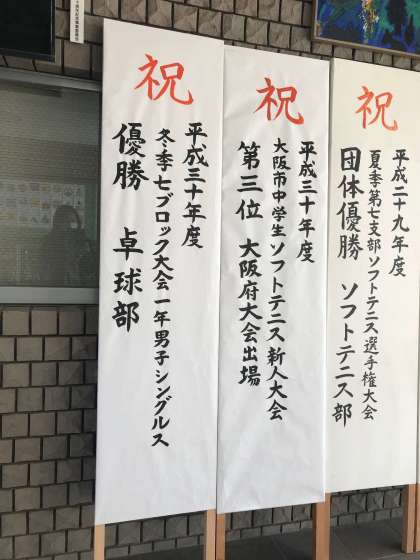 祝
平成二十九年度
夏季第七支部ソフトテニス選手権大会
団体優勝 ソフトテニス部
祝
平成三十年度
大阪市中学生ソフトテニス新人大会
第三位 大阪府大会出場
祝
平成三十年度
冬季七ブロック大会一年男子シングルス
優勝 卓球部